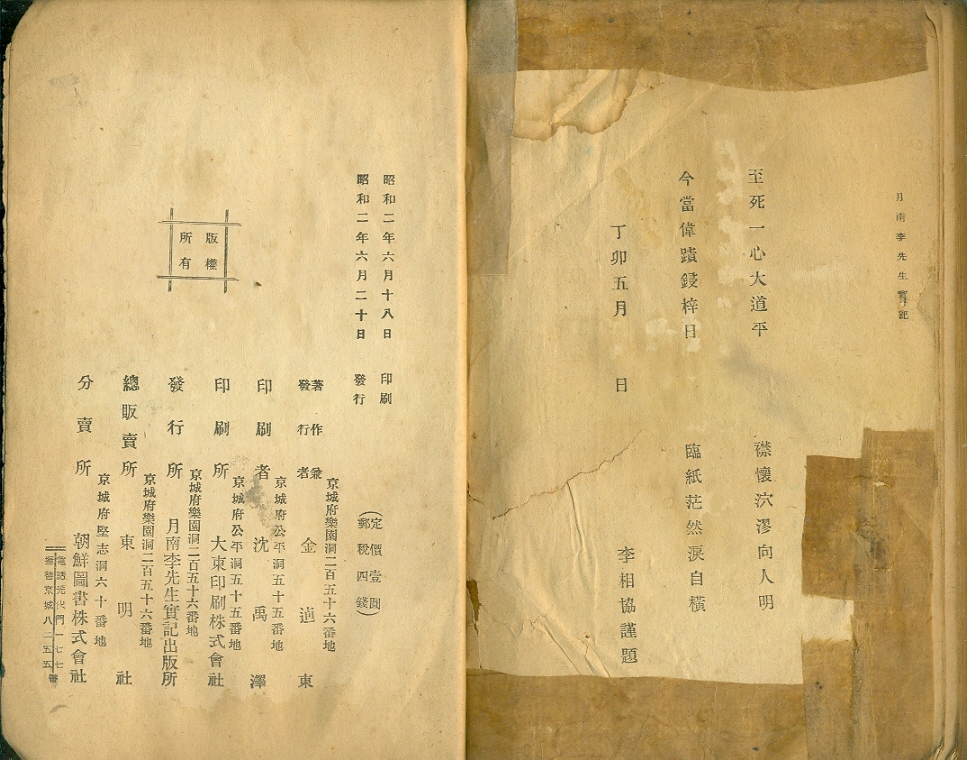 月南李先生實記
至死一心大道平 襟懷泬漻向人明
今當偉蹟鋟梓日 臨紙茫然淚自橫
丁卯五月 日 李相協謹題
昭和二年六月十八日 印刷
昭和二年六月二十日 發行
(定價壹圓
郵稅四錢)
京城府樂園洞二百五十六番地
著作兼
發行者 金 東
京城府公平洞五十五番地
印刷者 沈禹澤
京城府公平洞五十五番地
印刷所 大東印刷株式會社
京城府樂園洞二百五十六番地
發行所 月南李先生實記出版所
京城府樂園洞二百五十六番地
總販賣所 東明社
京城府堅志洞六十番地
分賣所 朝鮮圖書株式會社
電話光化門一七七
振替京城八二五五番
版權
所有